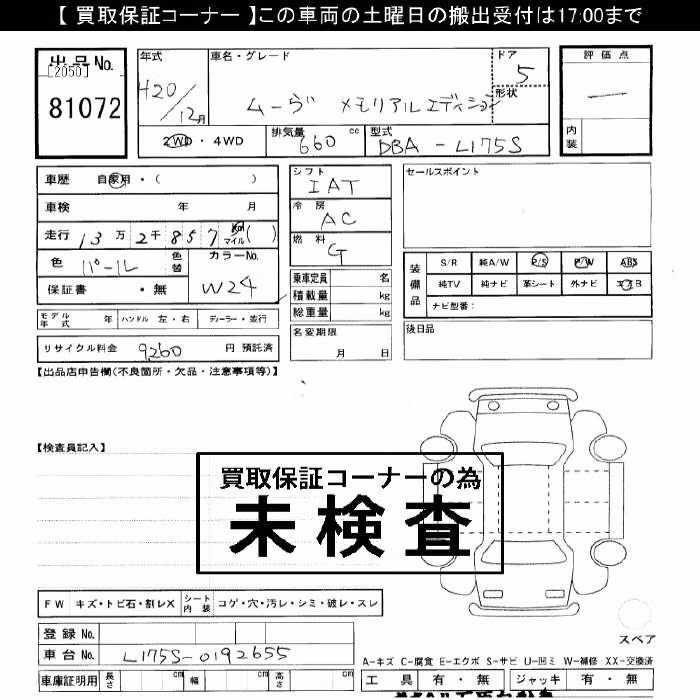 【 買取保証コーナー 】この車両の土曜日の搬出受付は17:00まで
出品No.
[2050]
81072
年式
H20/12月
車名・グレード
ムーヴ メモリアルエディション
ドア
5
形状
評価点
内装
2WD・4WD
排気量
660 cc
型式
DBA - L175S
車歴 自家用・( )
車検 年 月
走行 13万2千857 km マイル ( )
色 パール 色替
カラーNo.
W24
保証書 ・ 無
モデル年式 年 ハンドル 左・右 ディーラー・並行
リサイクル料金 9260 円 預託済
シフト
IAT
冷房
AC
燃料
G
乗車定員 名
積載量 kg
総重量 kg
名変期限
月 日
セールスポイント
装備品
S/R 純A/W P/S P/W ABS
純TV 純ナビ 革シート 外ナビ エアB
ナビ型番：
後日品
【出品店申告欄(不良箇所・欠品・注意事項等)】
【検査員記入】
買取保証コーナーの為
未検査
FW キズ・トビ石・割レX シート内装 コゲ・穴・汚レ・シミ・破レ・スレ
登録No.
車台No. L175S-0192655
車庫証明用 長さ cm 幅 cm 高さ cm
スペア
A-キズ C-腐食 E-エクボ S-サビ U-凹ミ W-補修 XX-交換済
工具 有・無 ジャッキ 有・無